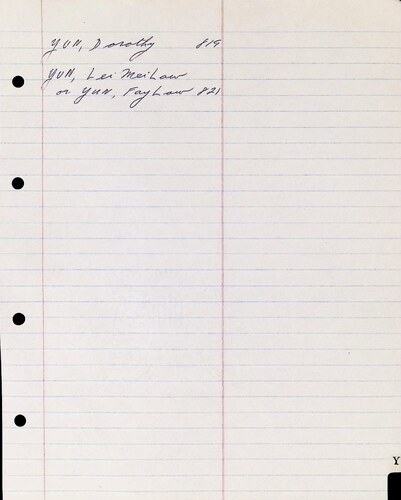 YUN, Dorothy 819
YUN, Lei Mei Law
or YUN, Fay Law 821
Y